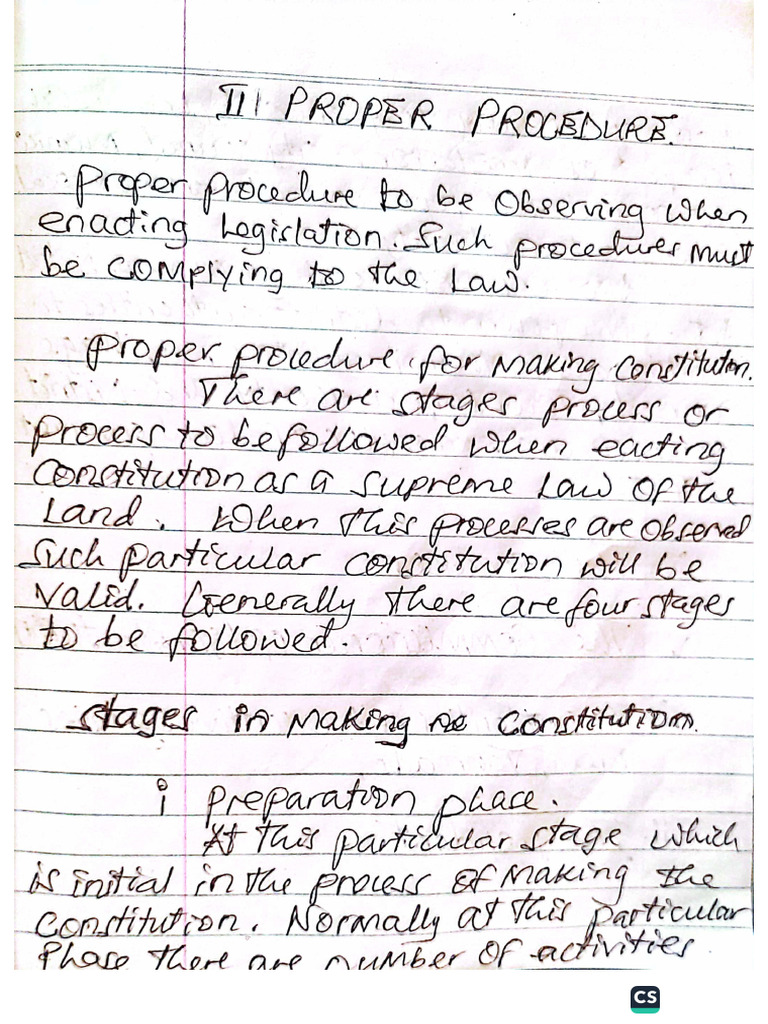 III PROPER PROCEDURE.
Proper procedure to be Observing when
enacting Legislation. Such procedures must
be complying to the Law.
Proper procedure for making constitution.
There are stages process or
process to be followed when eacting
constitution as a supreme Law of the
Land. When this processes are observed
such particular constitution will be
valid. Generally there are four stages
to be followed.
Stages in making constitution.
i preparation phace.
At this particular stage which
is initial in the process of making the
constitution. Normally at this particular
Phase there are number of activities
CS